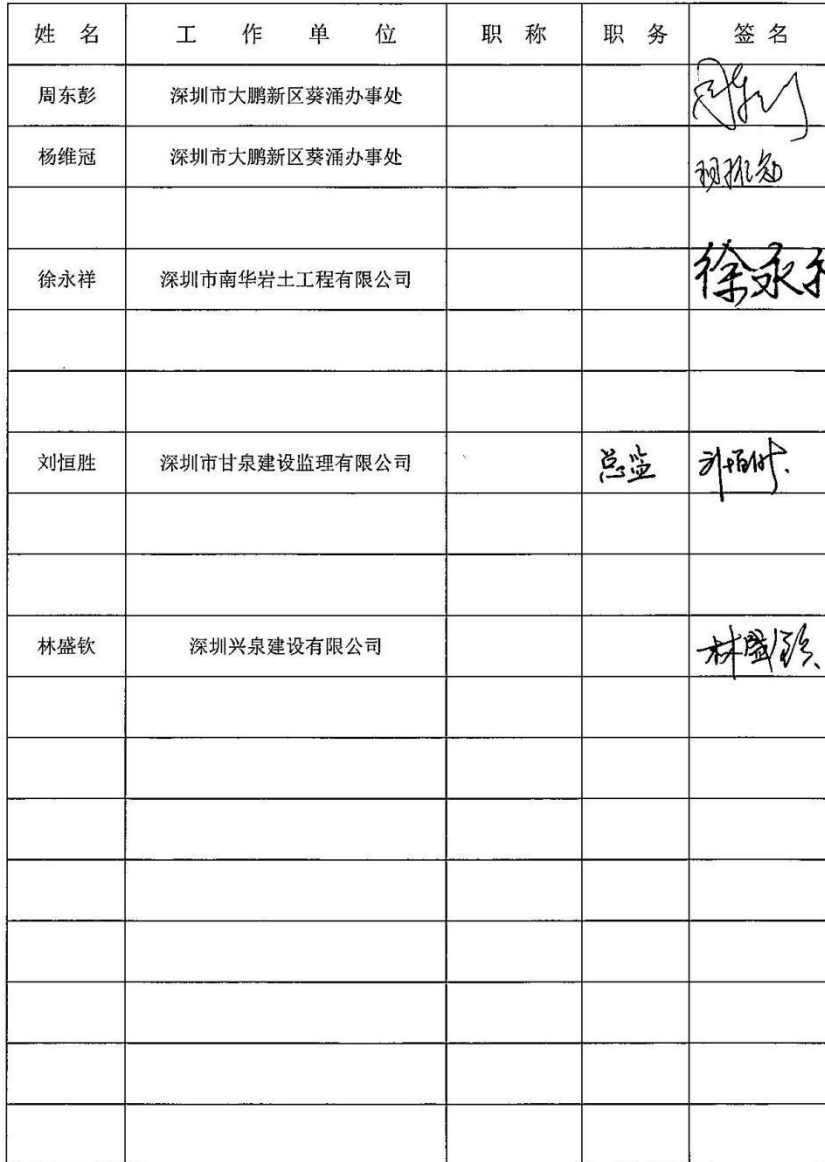 姓 名 工 作 单 位 职 称 职 务 签 名
周东彭 深圳市大鹏新区葵涌办事处
杨维冠 深圳市大鹏新区葵涌办事处 杨维冠
徐永祥 深圳市南华岩土工程有限公司 徐永
刘恒胜 深圳市甘泉建设监理有限公司 总监
林盛钦 深圳兴泉建设有限公司 林盛钦